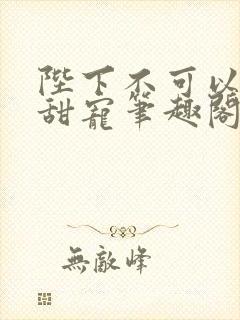 陛下不可以
甜寵筆趣閣
無敵峰